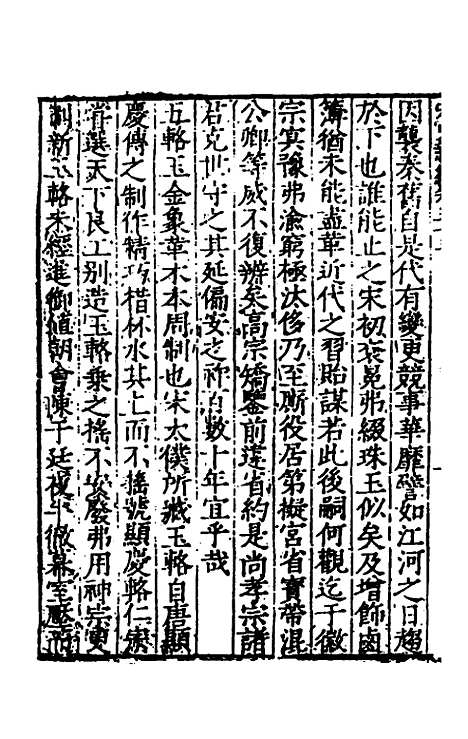 因襲秦舊自是代有變更競事華靡譬如江河之日趨
於下也誰能止之宋初衮冕弗綴珠玉似矣及增飾鹵
簿猶未能盡革近代之習貽謀若此後嗣何觀迄于徽
宗寘豫弗渝窮極汰侈乃至厮役居第擬宮省寳帶混
公卿等威不復辨矣高宗矯鑒前違省約是尚孝宗諸
君克世守之其延偏安之祚百數十年宜乎哉
五輅玉金象革木本周制也宋太僕所藏玉輅自唐顯
慶傳之制作精巧楷杯水其上而不摇號顯慶輅仁宗
嘗選天下良工别造玉輅乗之揺不安廢弗用神宗更
制新玉輅未經進御值朝會陳于廷復平徹幕室壓而